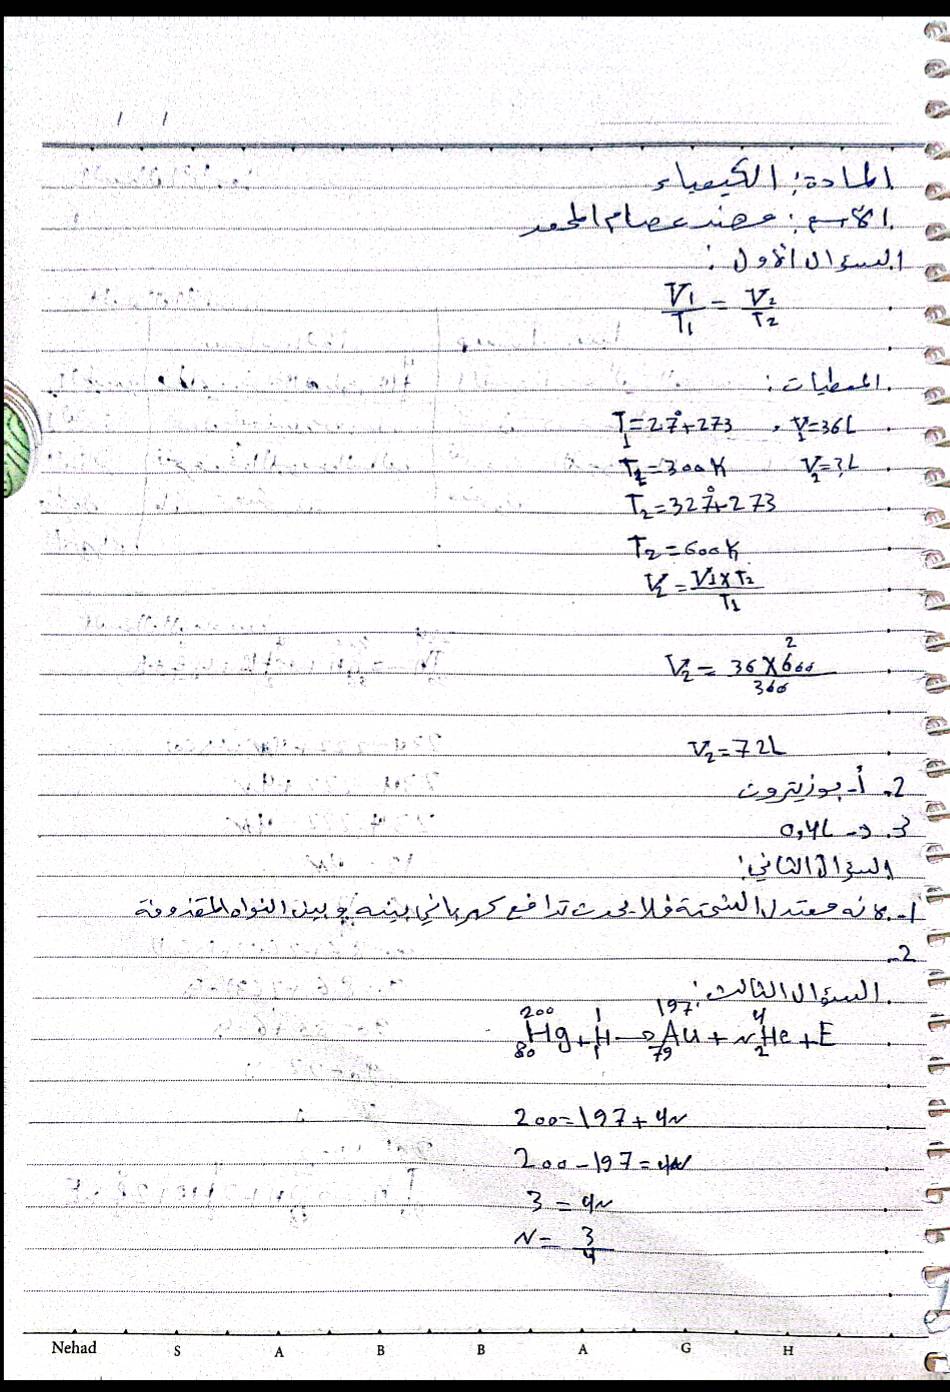 / /
المادة: الكيمياء
الاسم: مهند عصام المحمد
السؤال الأول:
V₁/T₁ = V₂/T₂
المعطيات:
T₁=27°+273 , V₁=36L
T₂=300K V₂=?L
T₂=327°+273
T₂=600K
V₂=V₁×T₂/T₁
V₂ = 36×600/300 2
V₂=72L
2. أ- بوزيترون
3. د- 0,4L
السؤال الثاني:
1- لانه معتدل الشحنة فلا يحدث تدافع كهربائي بينه و بين النواه المقذوفة
2-
السؤال الثالث:
²⁰⁰₈₀Hg + ¹₁H → ¹⁹⁷₇₉Au + N⁴₂He + E
200=197+4N
200-197=4N
3=4N
N=3/4
Nehad S A B B A G H